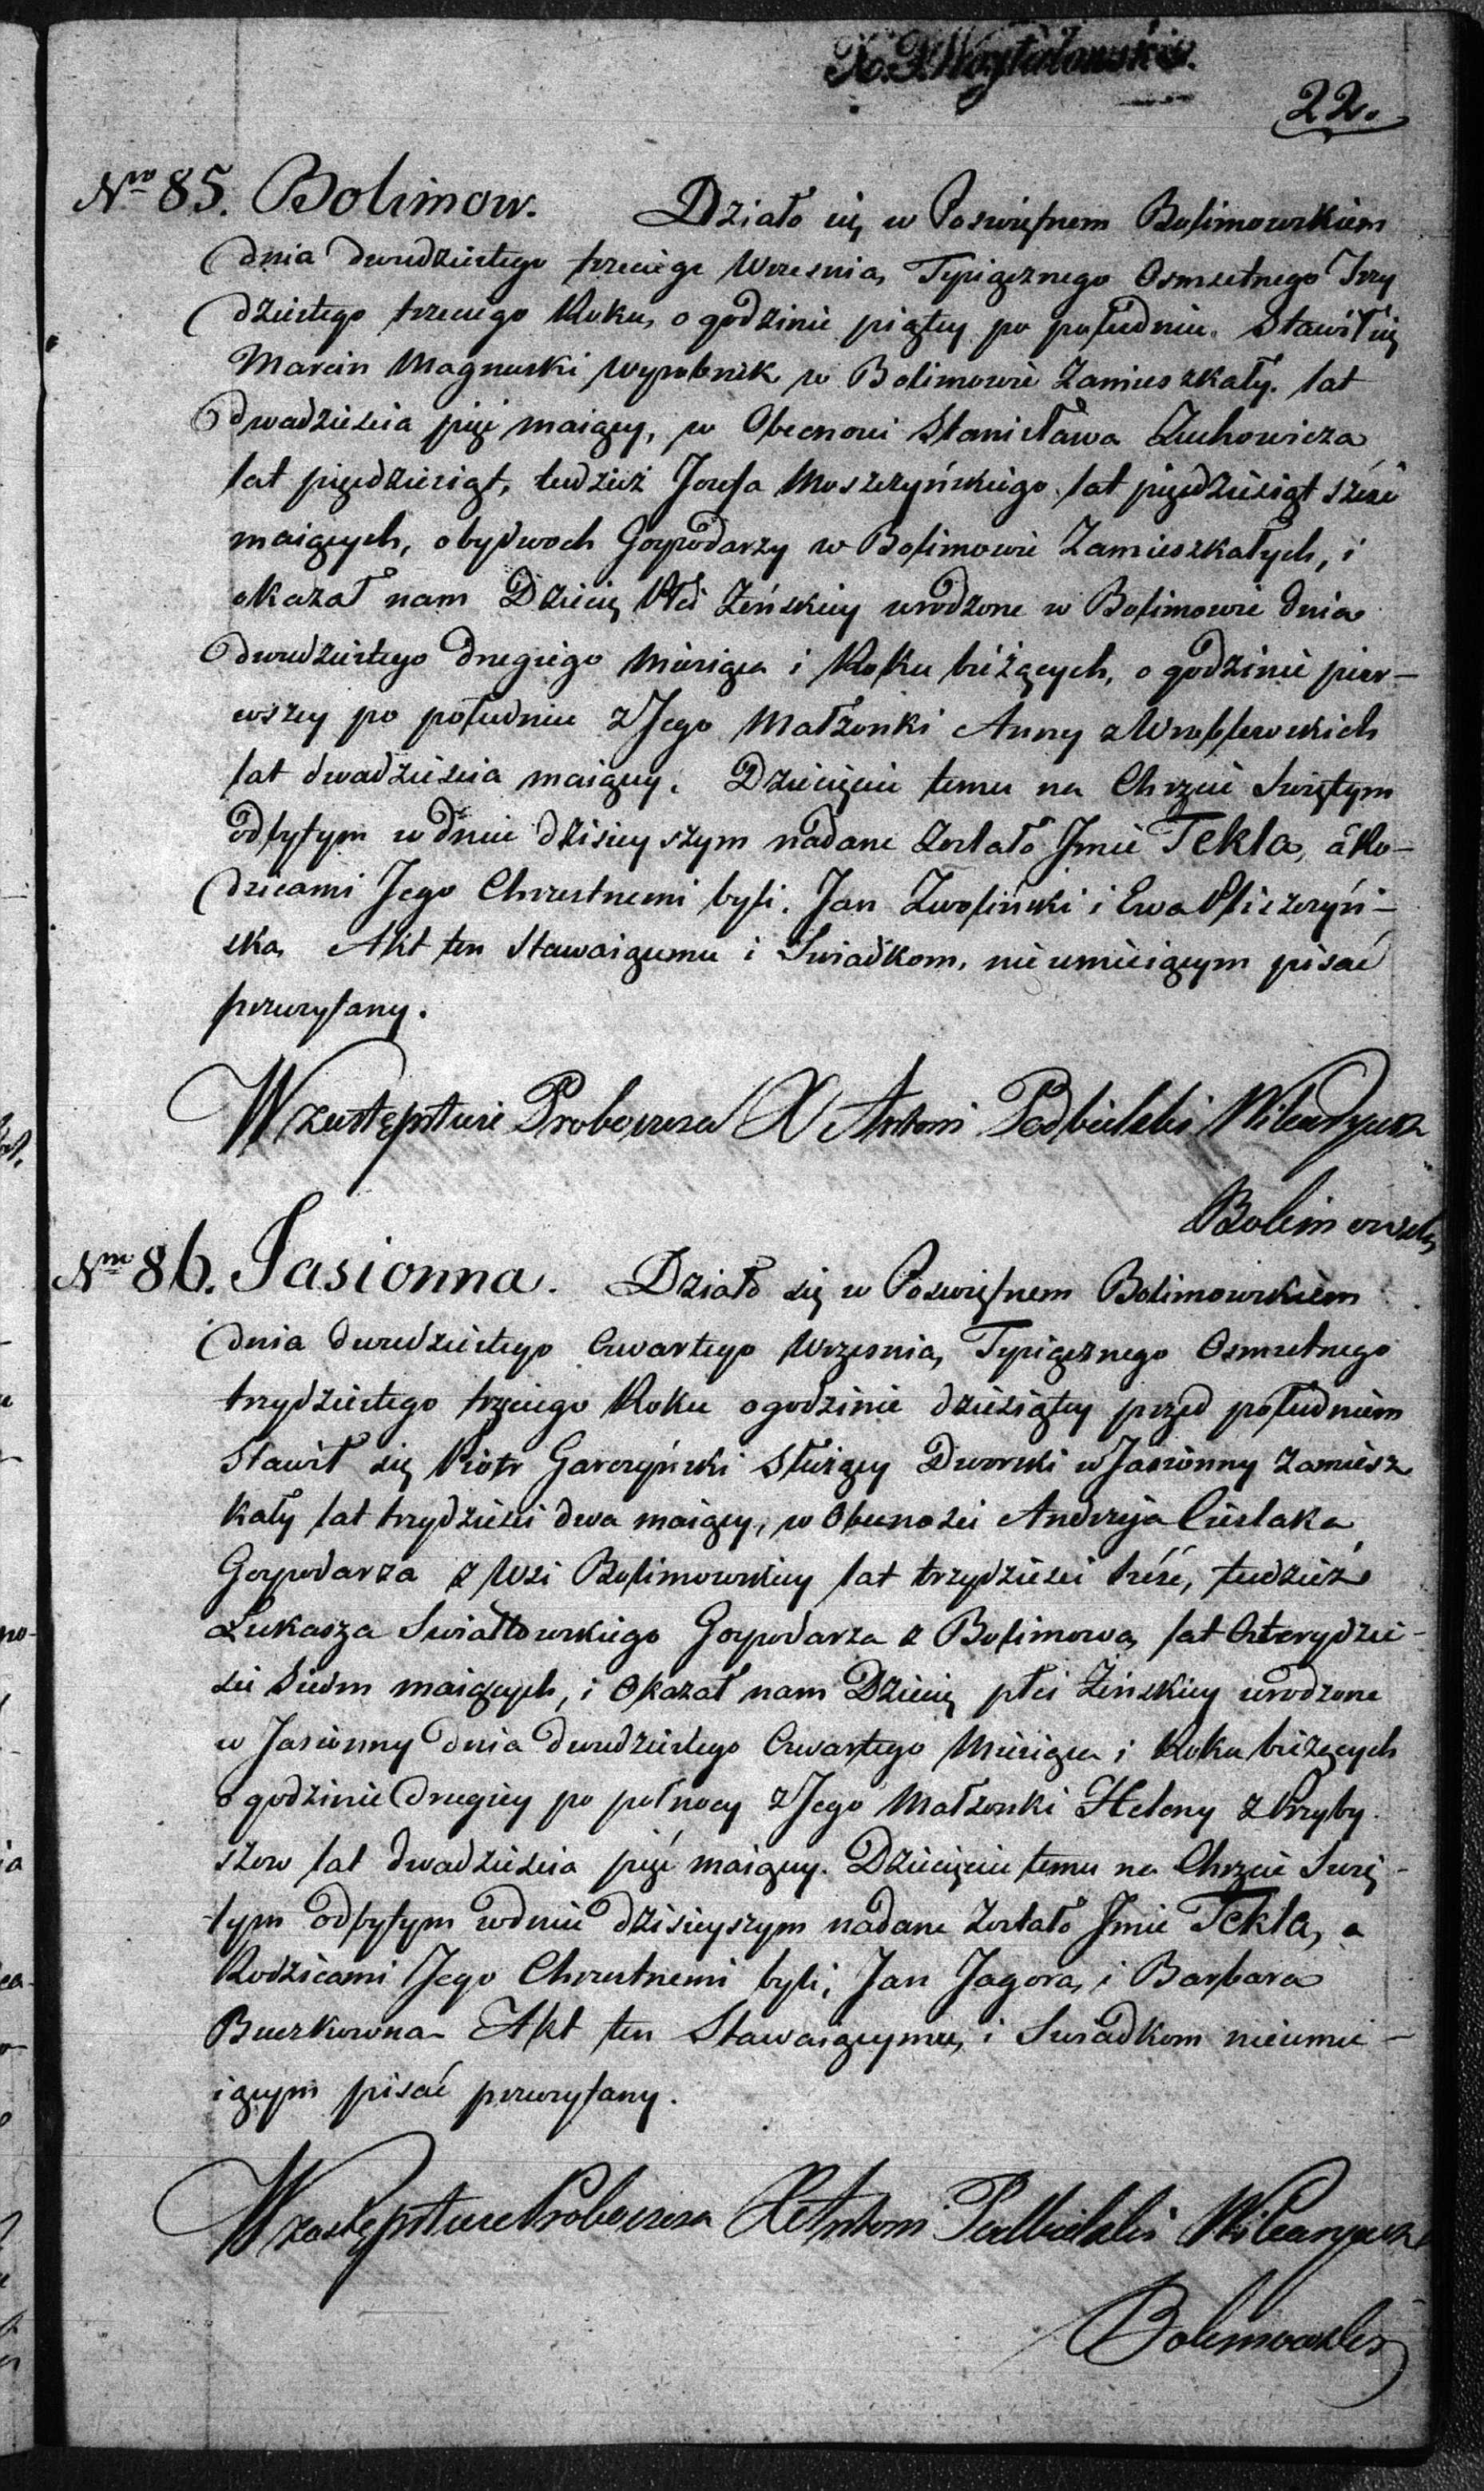 22.
Nro 85. Bolimow. Działo się w Poswiętnem Bolimowskiem
dnia dwudziestego trzeciego Wrzesnia, Tysiącznego Osmsetnego Trzy
dziestego trzeciego Roku, o godzinie piątey po południu. Stawił się
Marcin Magnuski wyrobnik w Bolimowie Zamieszkały. lat
dwadziescia pięć maiący, w Obecnosci Stanisława Zuchowicza
lat pięćdziesiąt, tudzież Josefa Moszczyńskiego lat pięćdziesiąt sześć
maiących, obydwoch Gospodarzy w Bolimowie Zamieszkałych, i
okazał nam Dziecię Płci Żeńskiey urodzone w Bolimowie dnia
dwudziestego drugiego Miesiąca i Roku bieżących, o godzinie pier-
wszey po południu z Jego Małżonki Anny z Wroblewskich
lat dwadziescia maiący. Dziecięciu temu na Chrzcie Swiętym
odbytym w dniu dzisieyszym nadane zostało Jmie Tekla, a Ro-
dzicami Jego Chrzestnemi byli. Jan Zwoliński i Ewa Pliszczyń-
ska, Akt ten Stawaiącemu i Swiadkom, nie umieiącym pisać
przeczytany.
W zastępstwie Proboszcza X Antoni Podbielski Wikaryusz
Bolimowski
Nro 86. Jasionna. Działo się w Poswiętnem Bolimowskiem
dnia dwudziestego Czwartego Wrzesnia, Tysiącznego Osmsetnego
trzydziestego trzeciego Roku o godzinie dziesiątey przed południem
Stawił się Piotr Garczyński Służący Dworski w Jasionny zamiesz
kały lat trzydziesci dwa maiący, w Obecnosci Andrzeja Cieslaka
Gospodarza z Wsi Bolimowskiey lat trzydziesci sześć, tudzież
Łukasza Swiatłowskiego Gospodarza z Bolimowa, lat Czterydzie-
sci Siedm maiących, i Okazał nam Dziecię płci Żeńskiey urodzone
w Jasionny dnia dwudziestego Czwartego Miesiąca i Roku bieżących
o godzinie drugiey po połnocy z Jego Małżonki Heleny z Przyby
szow lat dwadziescia pięć maiący. Dziecięciu temu na Chrzcie Swię-
tym odbytym w dniu dzisieyszym nadane zostało Jmie Tekla, a
Rodzicami Jego Chrzestnemi byli, Jan Jagora, i Barbara
Buczkowna Akt ten Stawaiącymu, i Swiadkom nieumie-
iącym pisać przeczytany.
W zastępstwie Proboszcza X Antoni Podbielski Wikaryusz
Bolimowski